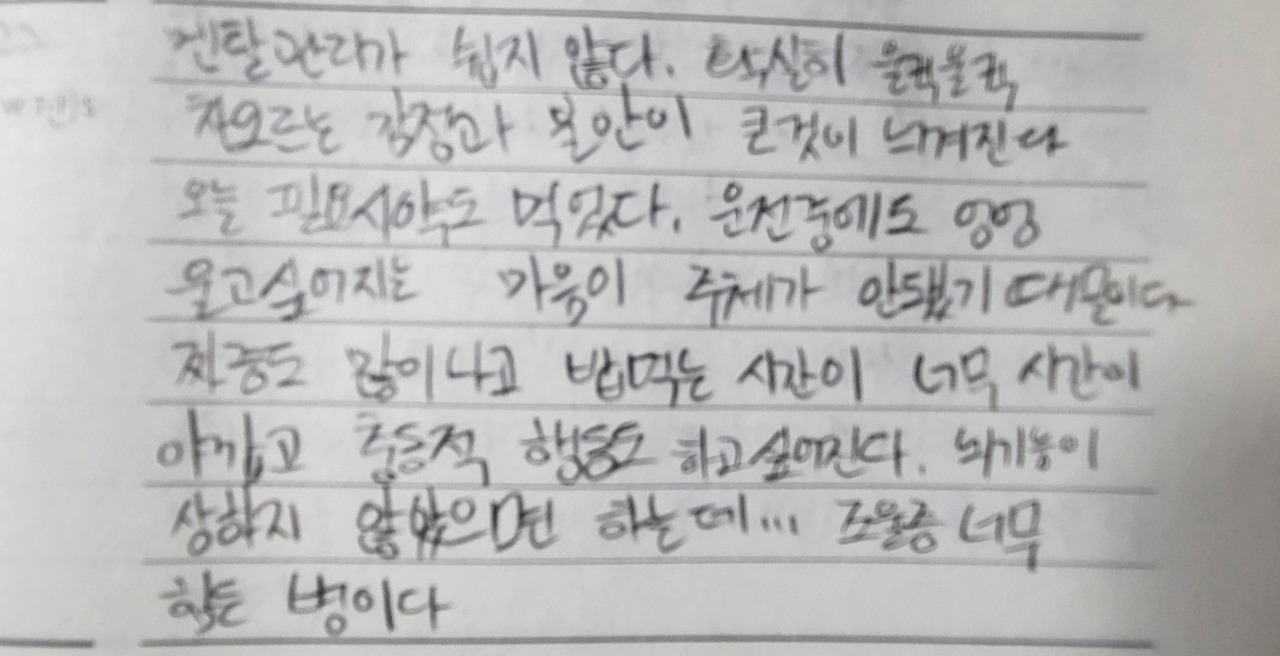 멘탈관리가 쉽지 않다. 확실히 울컥울컥
차오르는 감정과 불안이 큰것이 느껴진다
오늘 필요시약도 먹었다. 운전중에도 엉엉
울고싶어지는 마음이 주체가 안됐기 때문이다
짜증도 많이나고 밥먹는 시간이 너무 시간이
아깝고 충동적 행동도 하고싶어진다. 뇌기능이
상하지 않았으면 하는데... 조울증 너무
힘든 병이다